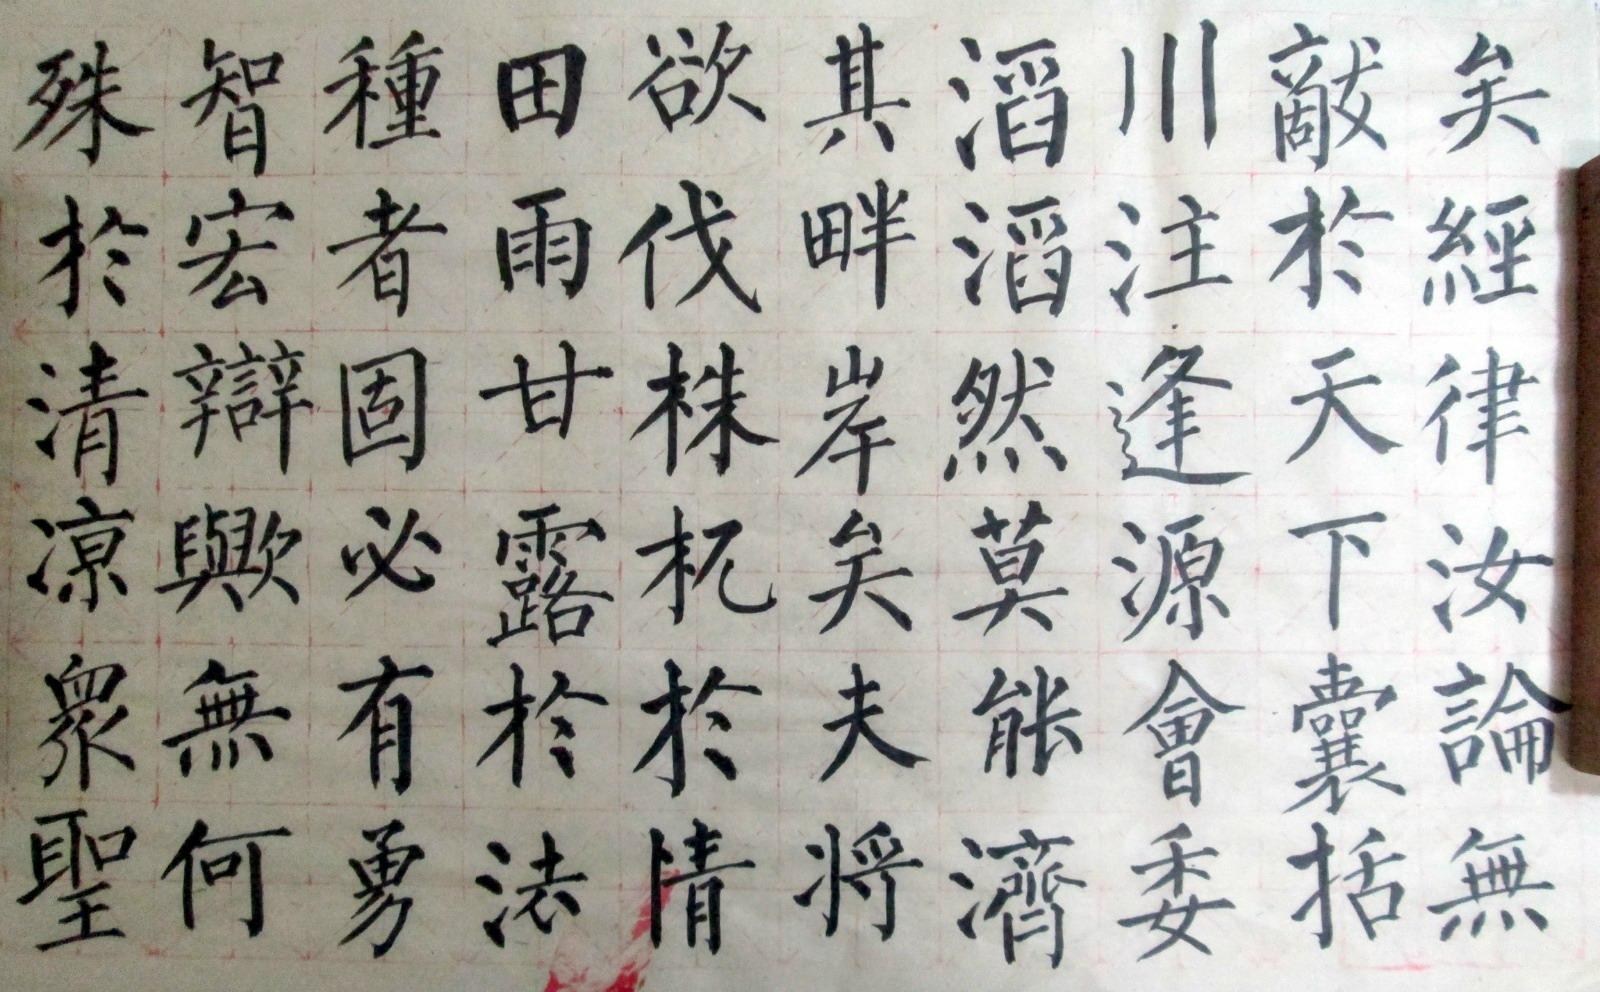 矣經律汝論無
敵於天下囊括
川注逢源會委
滔滔然莫能濟
其畔岸矣夫將
欲伐株杌於情
田雨甘露於法
種者固必有勇
智宏辯歟無何
殊於清涼衆聖